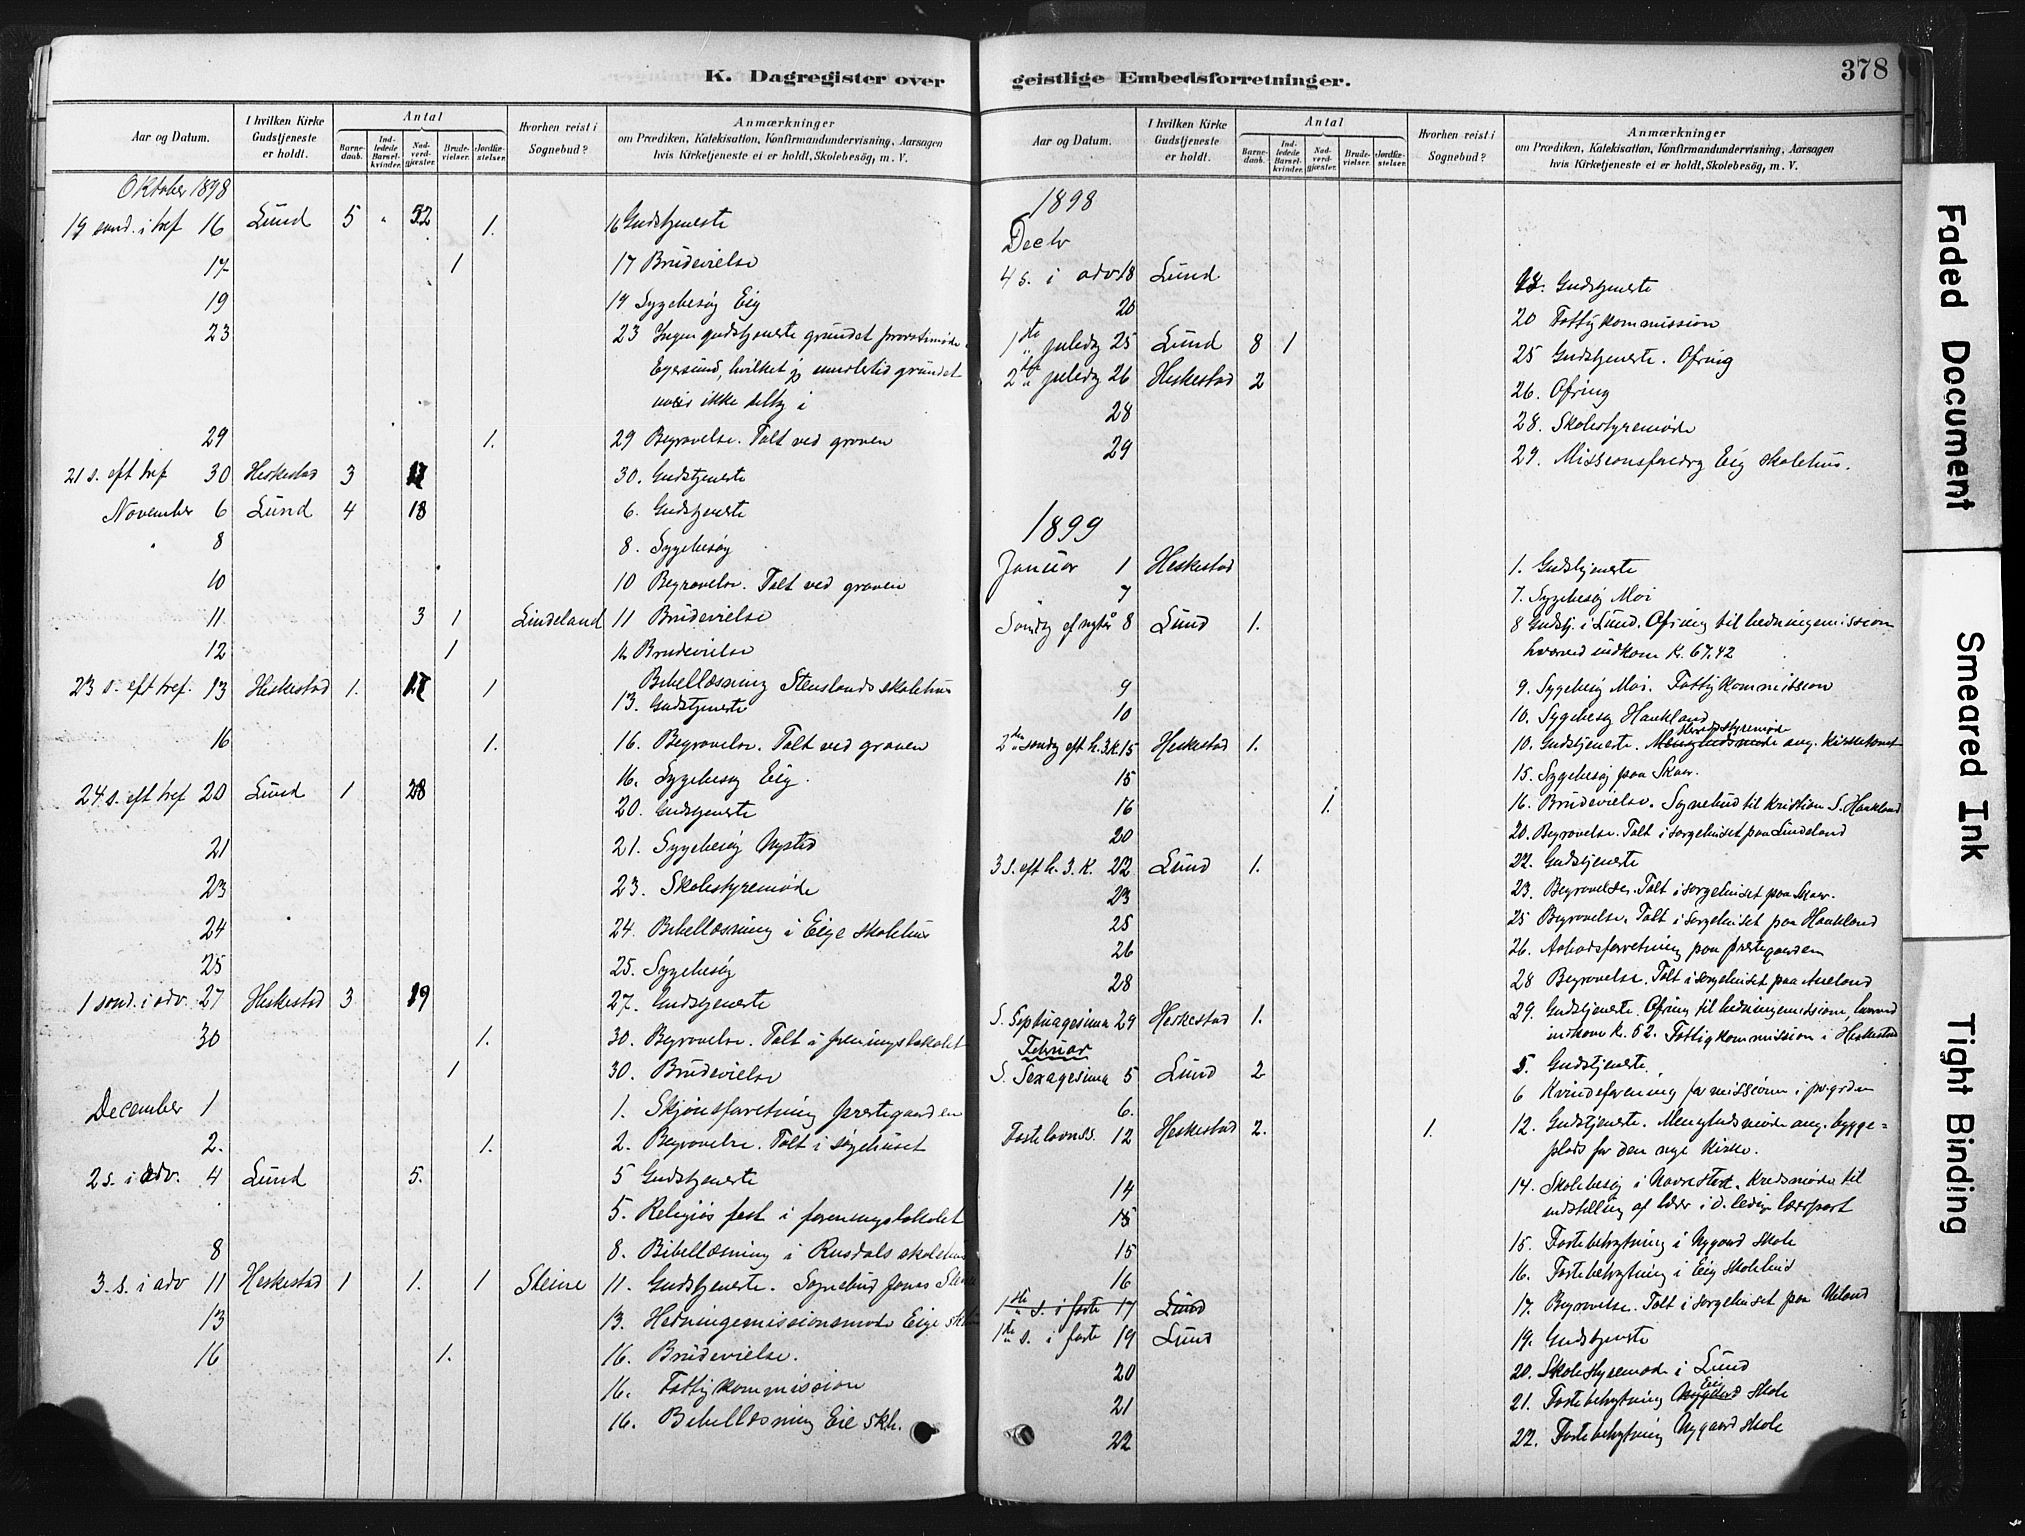 K. Dagregister over
Aar og Datum.
I hvilken Kirke Gudstjeneste er holdt.
Antal
Barnedaab.
Indledede Barselkvinder.
Nadverdgjæster.
Brudevielser.
Jordfæstelser.
Hvorhen reist i Sognebud?
Anmærkninger
om Prædiken, Katekisation, Konfirmandundervisning, Aarsagen
hvis Kirketjeneste ei er holdt, Skolebesög, m. V.
Oktober 1898
19 sond. i tref 16 Lund 5 " 52 1. 16 Gudstjeneste
17 1 17 Brudevielse
19 19 Sygebesøg Eig
23 23 Ingen gudstjeneste grundet provstimøde i
Egersund, hvilket jeg imidlertid grundet
ikke deltog i
29 1. 29 Begravelse. Talt ved graven
21 s. eft tref 30 Heskestad 3 30. Gudstjeneste
November 6 Lund 4 18 6. Gudstjeneste
" 8 8. Sygebesøg
10 10 Begravelse. Talt ved graven
11 3 1 Lindeland 11 Brudevielse
12 1 12 Brudevielse
Bibellæsning Stenslands skolehus
23 s. eft tref. 13 Heskestad 1. 1 13. Gudstjeneste
16 1. 16. Begravelse. Talt ved graven
16. Sygebesøg Eig.
24 s. eft tref 20 Lund 1 28 20. Gudstjeneste
21 21. Sygebesøg Nysted
23 23. Skolestyremøde
24 24. Bibellæsning i Eige skolehus
25 25. Sygebesøg
1 sond. i adv. 27 Heskestad 3 19 27. Gudstjeneste
30 1. 30. Begravelse. Talt i foreningslokalet
1 30. Brudevielse
December 1 1. Skjønsforretning prestegaarden
2. 1. 2. Begravelse. Talt i sørgehuset
2 s. i adv. 4 Lund 5. 5 Gudstjeneste
5. Religiøs fest i foreningslokalet
8 8. Bibellæsning i Rusdals skolehus
3. s. i adv 11 Heskestad 1 1. 1 Steine 11. Gudstjeneste. Sognebud Jonas
13 13. Hedningemissionsmøde Eige
16 1. 16. Brudevielse.
16. Fattigkommission
16. Bibellæsning Eie skh.
geistlige Embedsforretninger.
378
Aar og Datum.
I hvilken Kirke Gudstjeneste er holdt.
Antal
Barnedaab.
Indledede Barselkvinder.
Nadverdgjæster.
Brudevielser.
Jordfæstelser.
Hvorhen reist i Sognebud?
Anmærkninger
om Prædiken, Katekisation, Konfirmandundervisning, Aarsagen
hvis Kirketjeneste ei er holdt, Skolebesög, m. V.
1898
Decbr
4 s. i adv 18 Lund 18. Gudstjeneste
20 20 Fattigkommission
1ste juledag 25 Lund 8 1 25 Gudstjeneste. Ofring
2den juledag 26 Heskestad 2 26. Ofring
28 28. Skolestyremøde
29 29. Missionsforedrag Eig skolehus.
1899
Januar 1 Heskestad 1. Gudstjeneste
7 7. Sygebesøg Moi
Søndag ef nytår 8 Lund 1. 8 Gudstj. i Lund. Ofring til hedningemission
hvorved indkom K. 67.42
9 9. Sygebesøg Moi. Fattigkommission
10 10. Sygebesøg Haukland
Herredsstyremøde
2den søndag eft h. 3 k. 15 Heskestad 1. 10. Gudstjeneste. Menighedsmøde ang. kirketomt
15 15. Sygebesøg paa Skaar.
16 1. 16. Brudevielse. Sognebud til Kristian S. Haukland
20 20. Begravelse. Talt i sørgehuset paa Lindeland
3 s. eft h. 3. k. 22 Lund 1. 22. Gudstjeneste
23 23. Begravelse. Talt i sørgehuset paa Skaar.
25 25 Begravelse. Talt i sørgehuset paa Haukland
26 26. Aabodsforretning paa prestegaarden
28 28 Begravelse. Talt i sørgehuset paa Aueland
S. Septuagesima 29 Heskestad 1. 29. Gudstjeneste. Ofring til hedningemission, hvorved
indkom k. 52. Fattigkommission i Heskestad
Februar
S. Sexagesima 5 Lund 2 5. Gudstjeneste.
6. 6 Kvindeforening for missionen i prgrden
Fastelavnss. 12 Heskestad 2. 1. 12. Gudstjeneste. Menighedsmøde ang. bygge=
plads for den nye kirke.
14 14. Skolebesøg i Kredsmøde til
indstilling af lærer i d. ledige lærerpost
15
15 15. Fastebetragtning i Nygaard Skole
16 16. Fastebetragtning i Eig Skolehus
1ste s. i faste 17 Lund 17. Begravelse. Talt i sørgehuset paa Ueland
1ste s. i faste 19 Lund 19. Gudstjeneste
20 20. Skolestyremøde i Lund
Eig
21 21. Fastebetragtning Nygaard Skole
22 22. Fastebetragtning Nygaard skole
Faded Document
Smeared Ink
Tight Binding